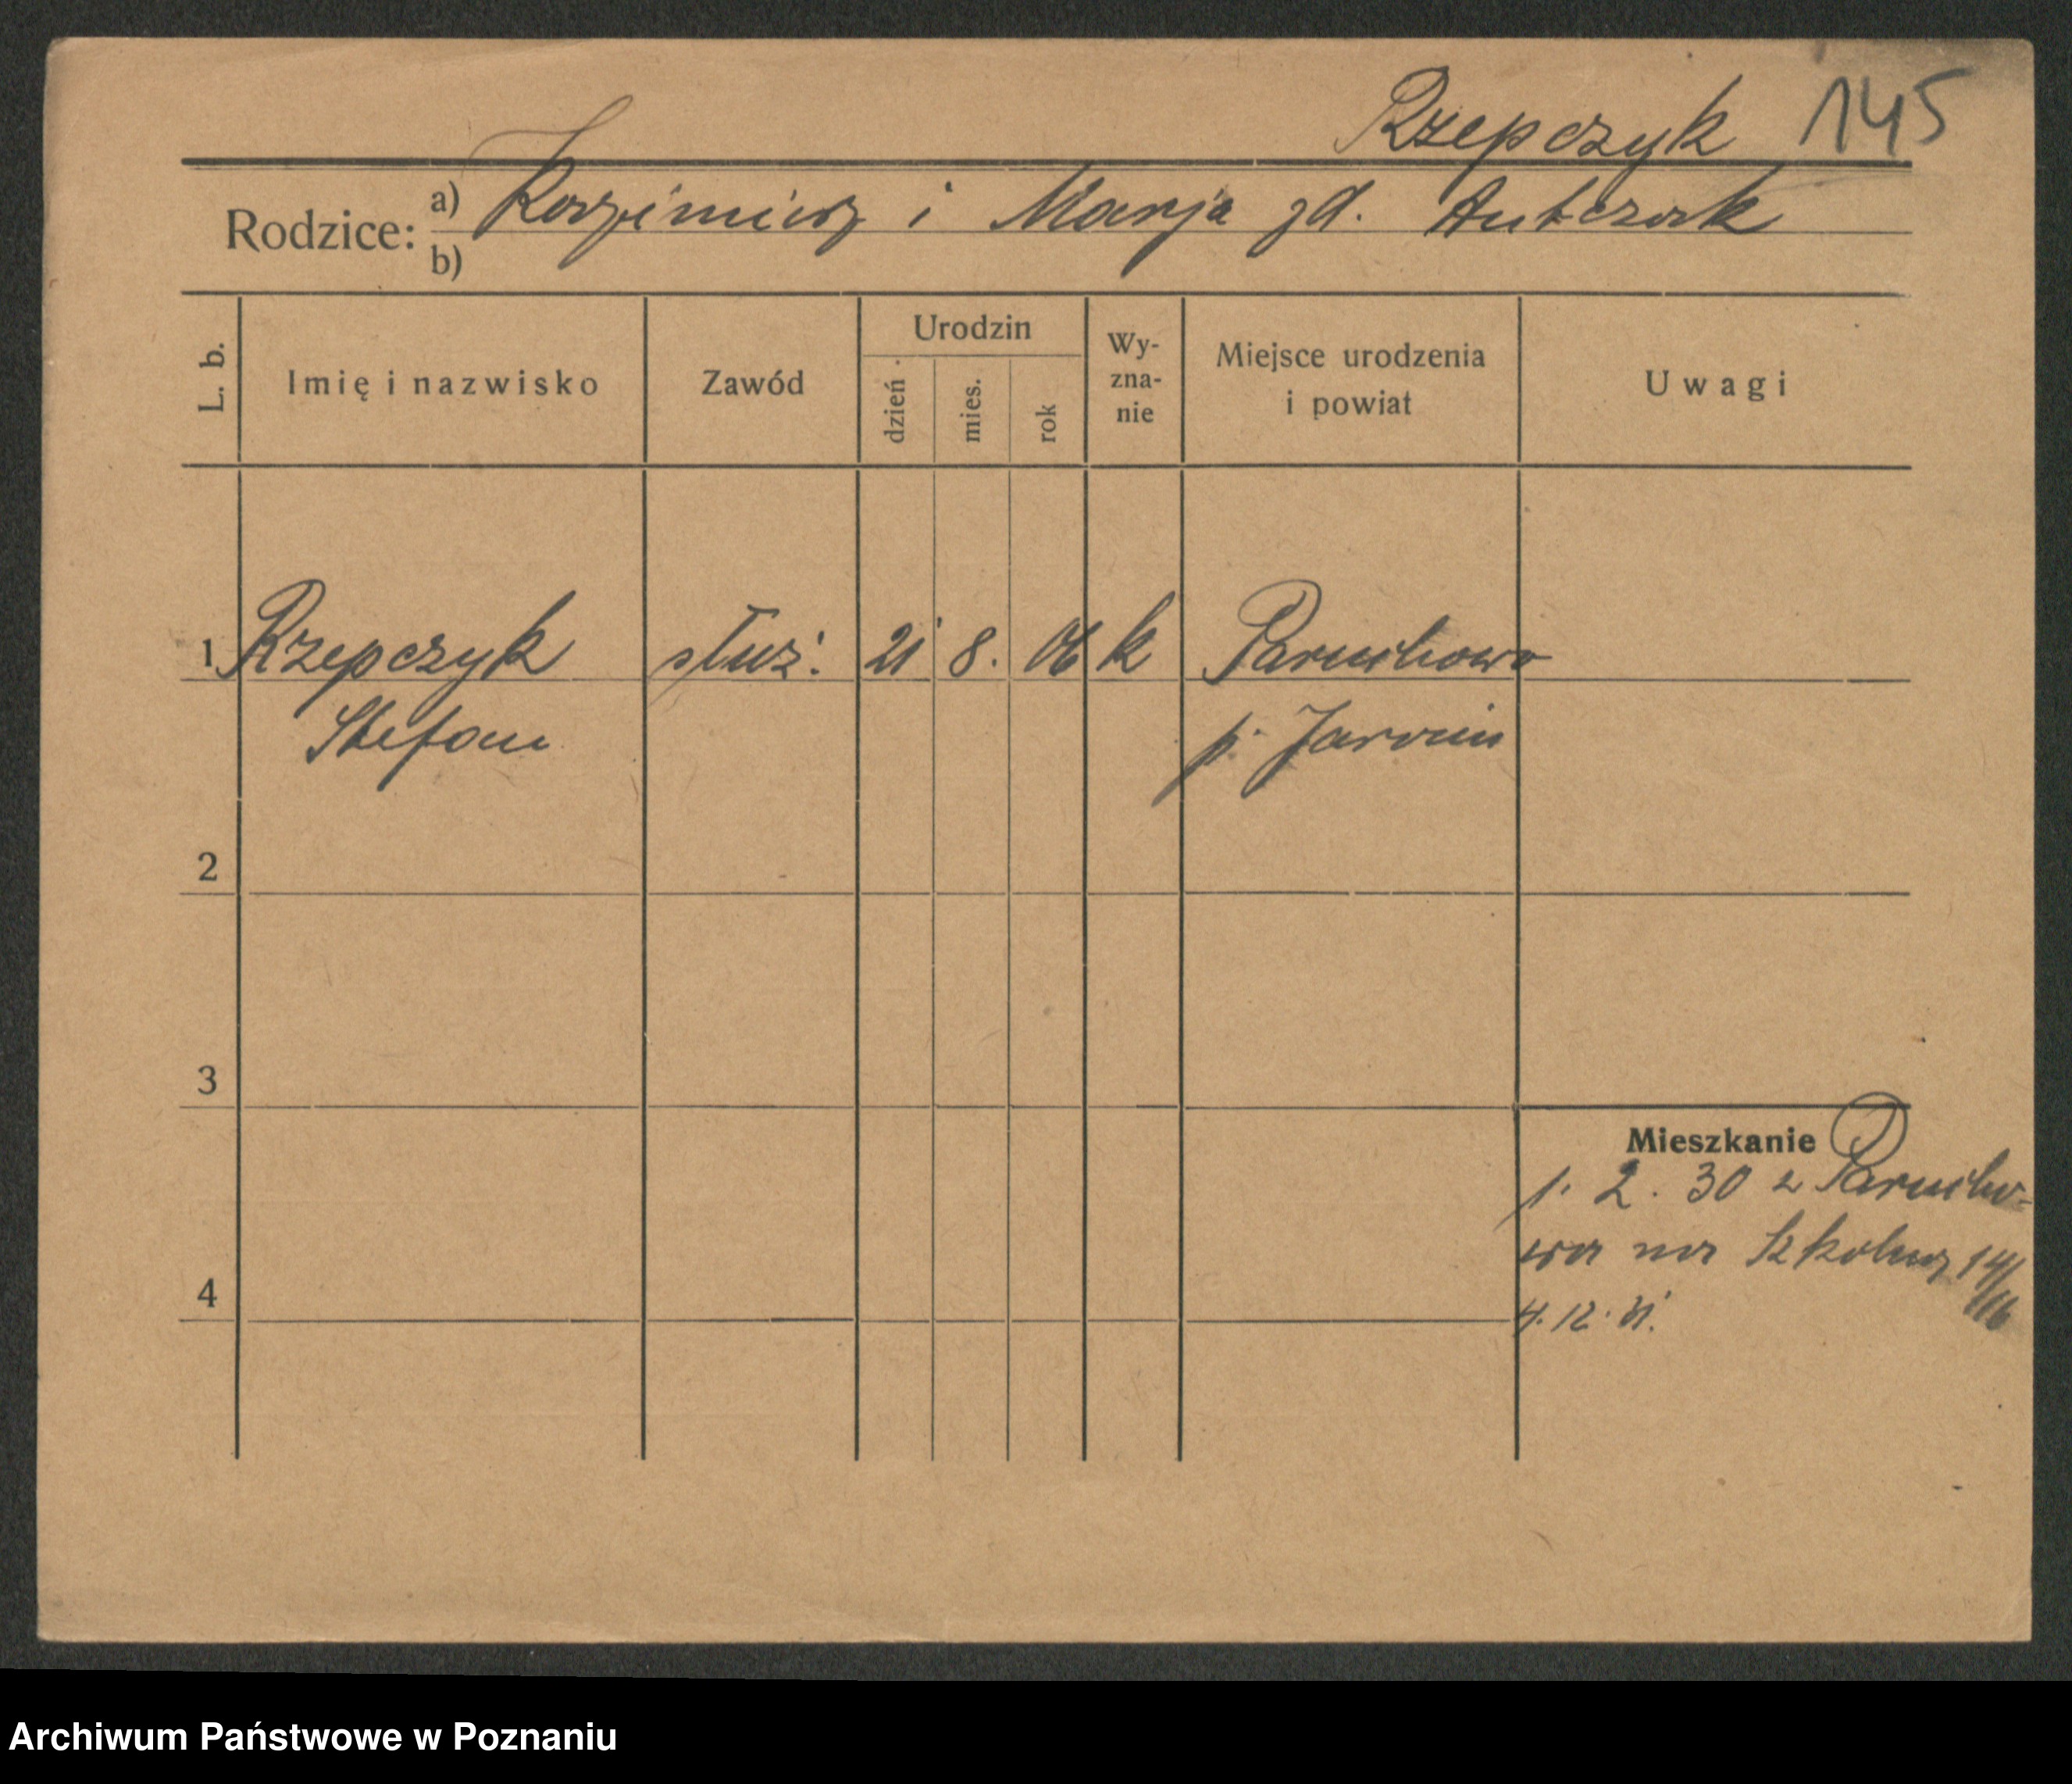 Rzepczyk 145
Rodzice: a) Kazimierz i Marja zd. Antczak
b)
L. b.
Imię i nazwisko
Zawód
Urodzin
dzień
mies.
rok
Wy-
zna-
nie
Miejsce urodzenia
i powiat
Uwagi
1 Rzepczyk służ. 21 8. 06 k Paruchowo
Stefan p. Jarocin
2
3
4
Mieszkanie
1. 2. 30 z Parucho-
wa na Szkolną 14/
4. 12. 31.
Archiwum Państwowe w Poznaniu